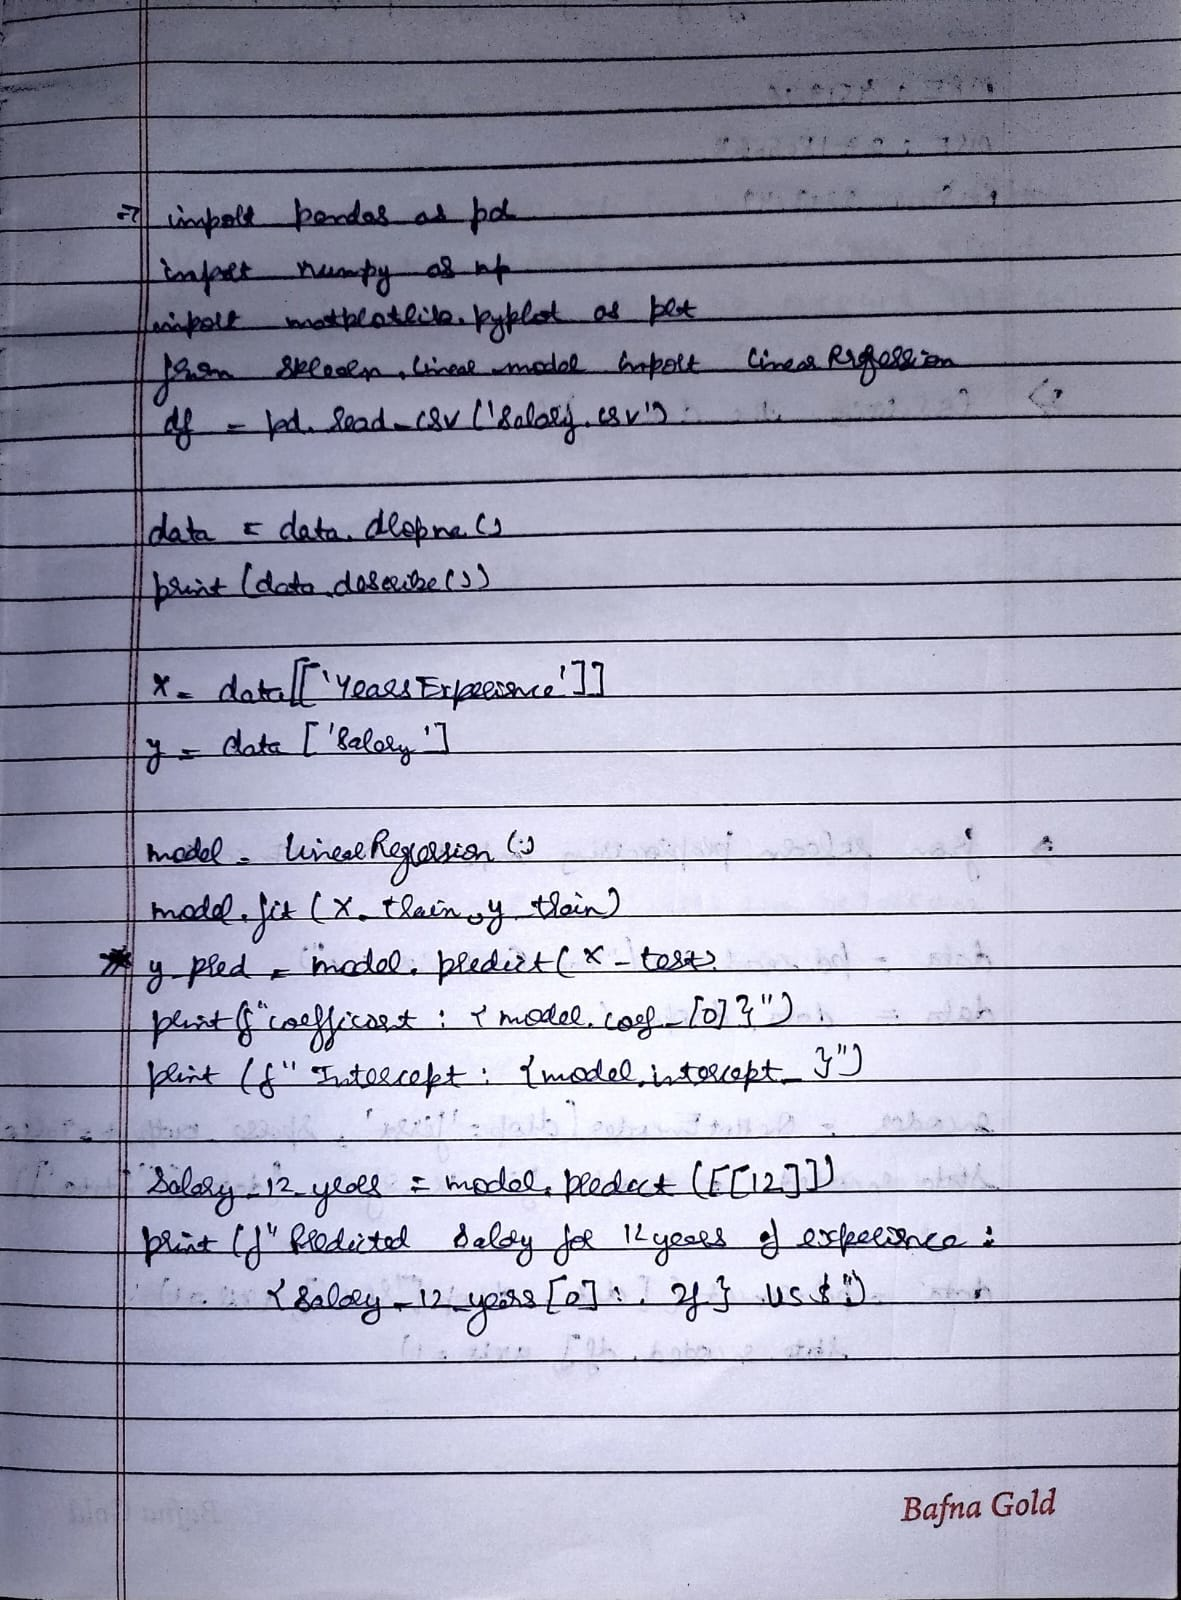 import pandas as pd
import numpy as np
import matplotlib.pyplot as plt
from sklearn.linear_model import LinearRegression
df = pd.read_csv('Salary.csv')
data = data.dropna()
print(data.describe())
X = data[['YearsExperience']]
y = data['Salary']
model = LinearRegression()
model.fit(X_train, y_train)
* y_pred = model.predict(X_test)
print(f"coefficient : {model.coef_[0]}")
print(f"Intercept : {model.intercept_}")
Salary_12_years = model.predict([[12]])
print(f"Predicted Salary for 12 years of experience :
{Salary_12_years[0]:.2f} US$")
Bafna Gold